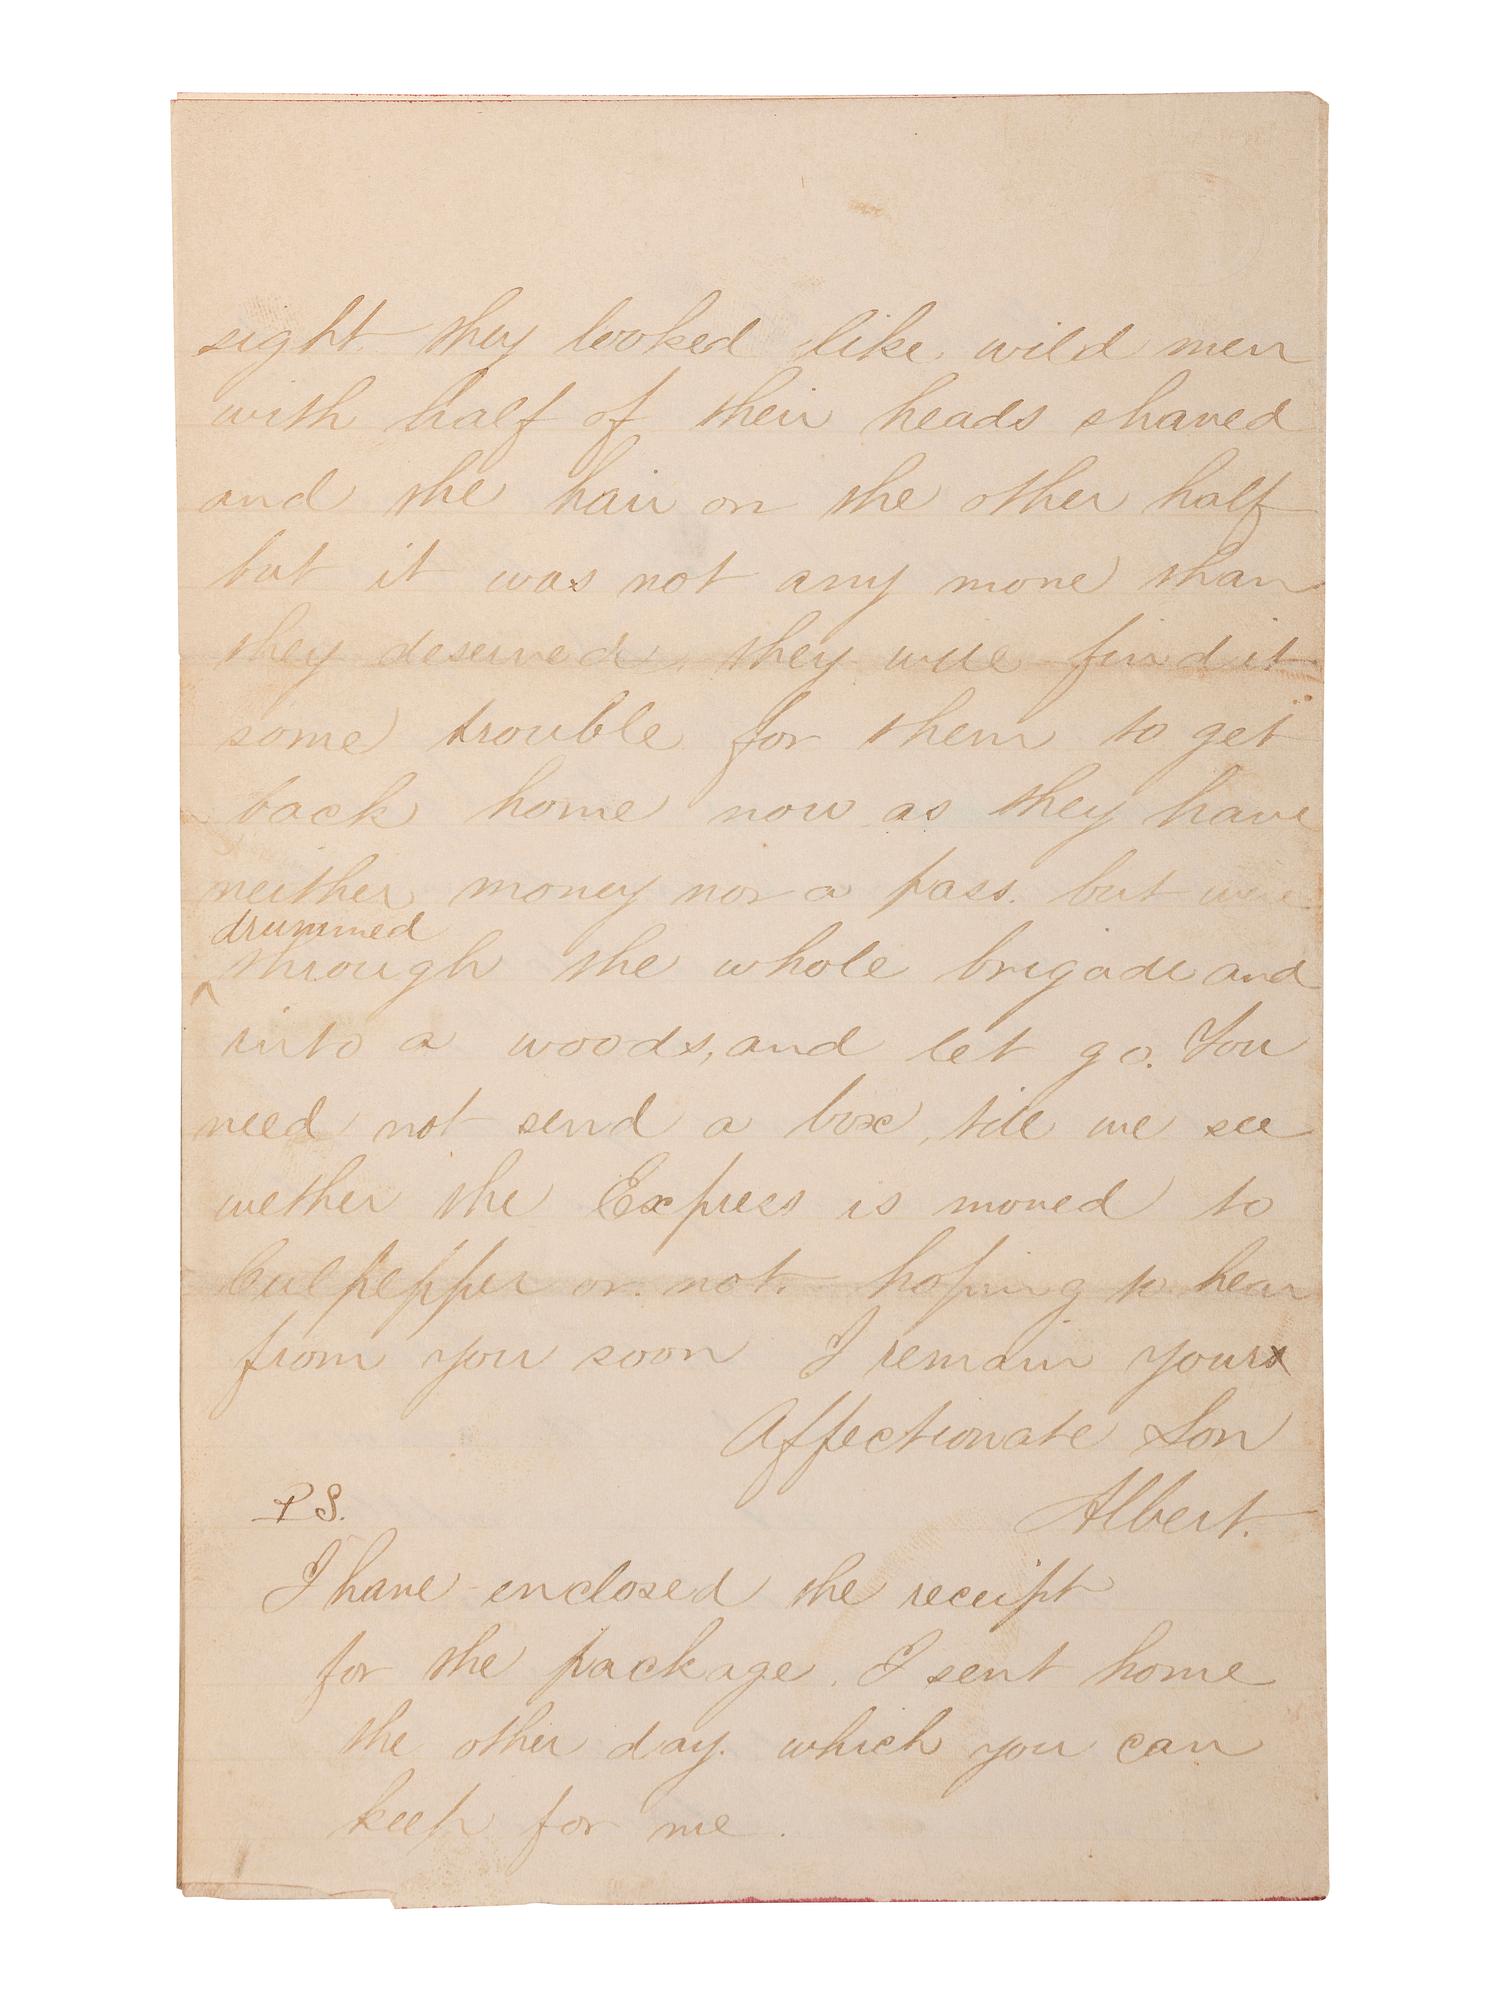 sight they looked like wild men
with half of their heads shaved
and the hair on the other half
but it was not any more than
they deserved, they will find it
some trouble for them to get
back home now as they have
neither money nor a pass. but were
drummed
^ through the whole brigade and
into a woods, and let go. You
need not send a box, till we see
wether the Express is moved to
Culpepper or not. hoping to hear
from you soon I remain your
Affectionate Son
Albert.
P S.
I have enclosed the receipt
for the package. I sent home
the other day. which you can
keep for me.